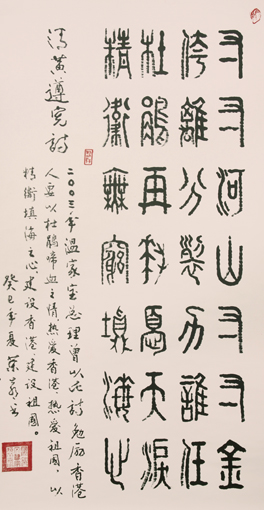 寸寸河山寸寸金
侉離分裂力誰任
杜鵑再拜憂天淚
精衛無窮填海心
清黃遵宪詩
二〇〇三年溫家宝总理曾以此詩勉励香港
人要以杜鵑啼血之情热爱香港、热爱祖國,以
精衛填海之心建设香港建设祖國。
癸巳年夏